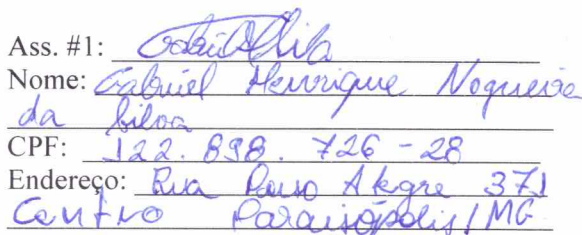 Ass. #1:
Nome: Gabriel Henrique Nogueira
da Silva
CPF: 122.898.726-28
Endereço: Rua Pouso Alegre 371
Centro Paraisópolis/MG